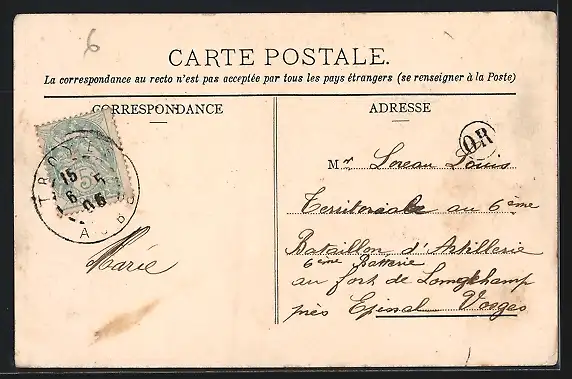 6
CARTE POSTALE.
La correspondance au recto n'est pas acceptée par tous les pays étrangers (se renseigner à la Poste)
CORRESPONDANCE
ADRESSE
TROYES
15
6-5
06
AUBE
5
OR
Mr Loreau Louis
Territoriale au 6ème
Bataillon d'Artillerie
6ème Batterie
au fort de Longchamp
près Epinal Vosges
Marie